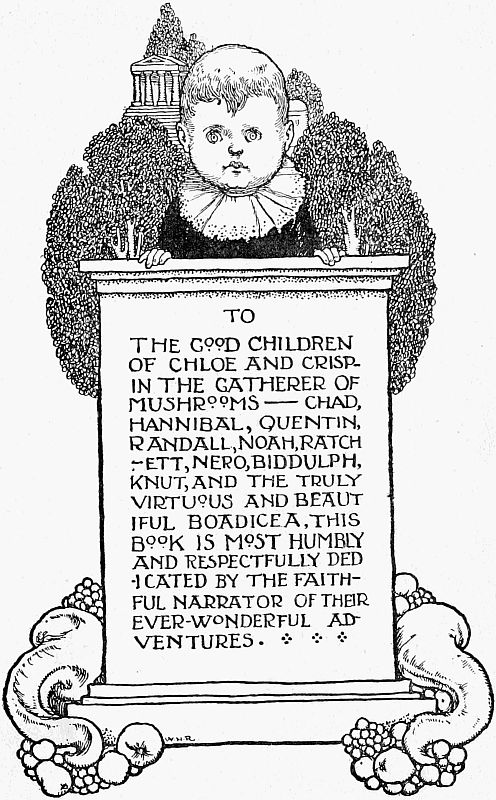 TO
THE GOOD CHILDREN
OF CHLOE AND CRISP-
IN THE GATHERER OF
MUSHROOMS — CHAD,
HANNIBAL, QUENTIN,
RANDALL, NOAH, RATCH
-ETT, NERO, BIDDULPH,
KNUT, AND THE TRULY
VIRTUOUS AND BEAUT
IFUL BOADICEA, THIS
BOOK IS MOST HUMBLY
AND RESPECTFULLY DED
-ICATED BY THE FAITH-
FUL NARRATOR OF THEIR
EVER-WONDERFUL AD-
VENTURES.
W.H.R.